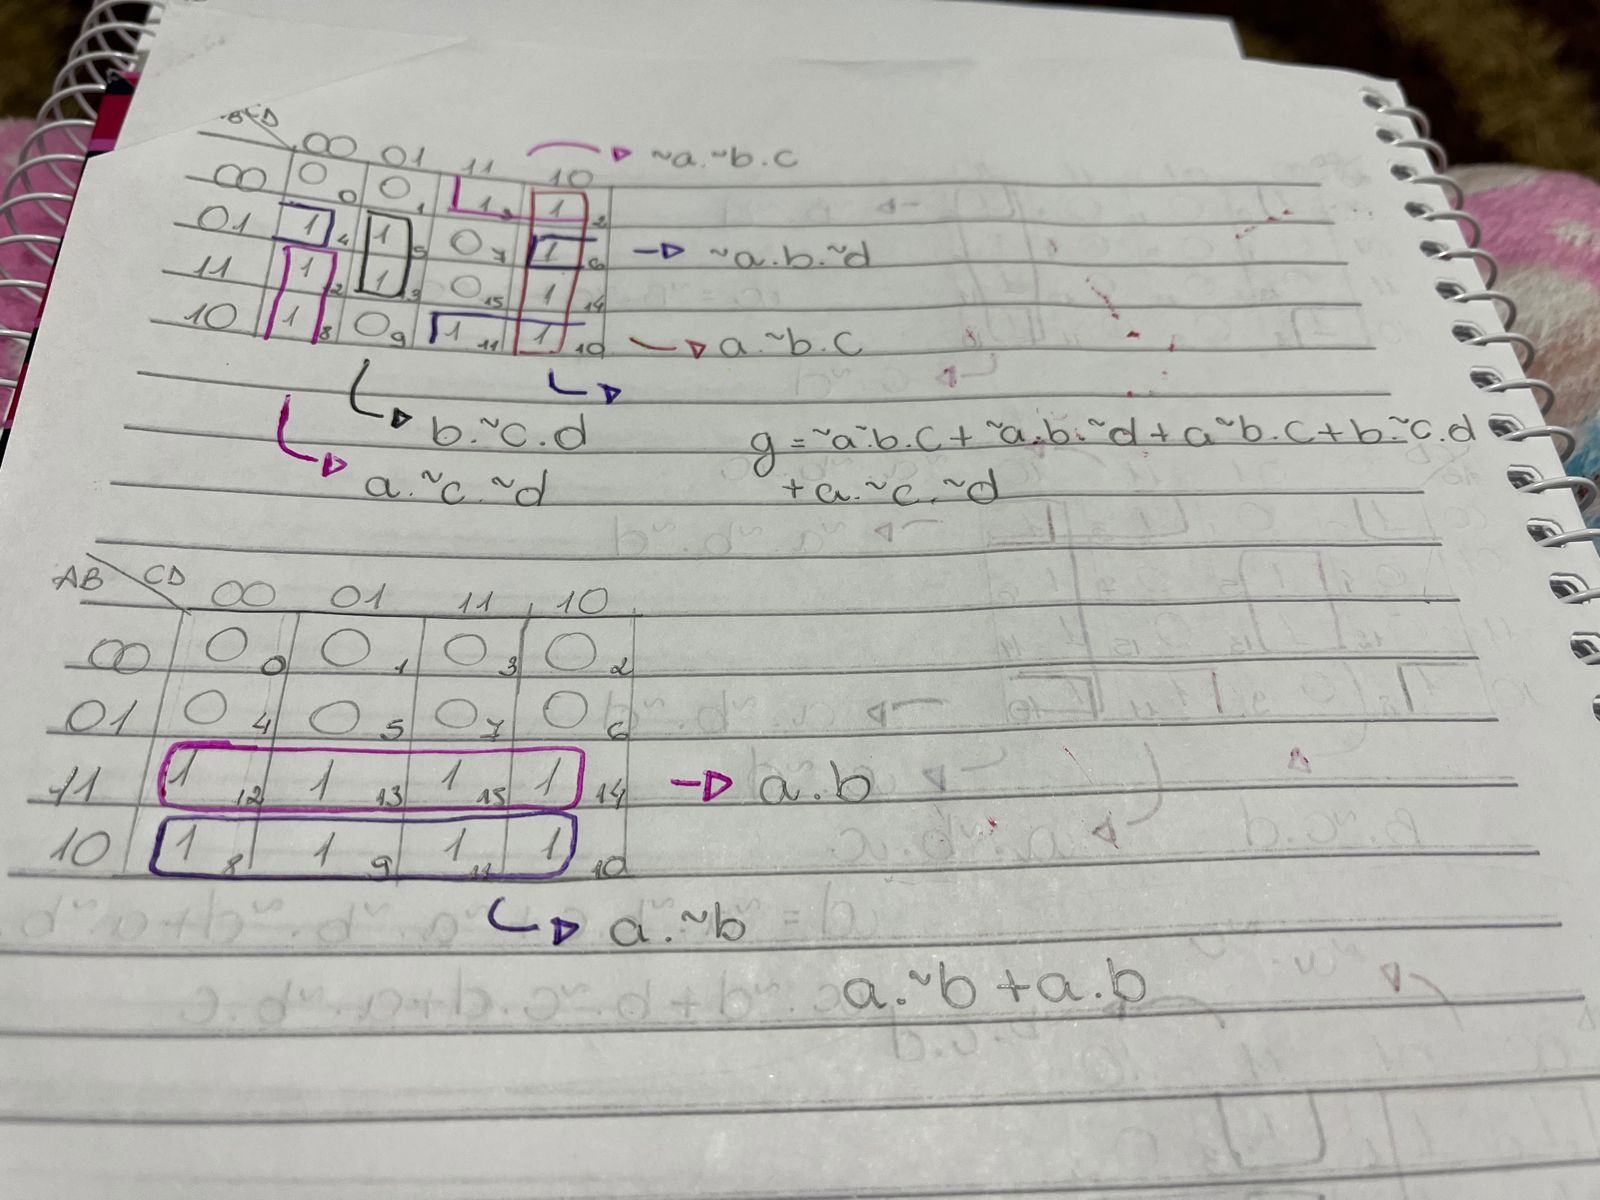 CD
00 01 11 10 ~a.~b.c
00 0 0 0 1 1 3 1 2
01 1 4 1 5 0 7 1 6 ~a.b.~d
11 1 12 1 13 0 15 1 14
10 1 8 0 9 1 11 1 10 a.~b.c
b.~c.d
g=~a~b.c+~a.b.~d+a~b.c+b.~c.d
a.~c.~d
+a.~c.~d
AB CD 00 01 11 10
00 0 0 0 1 0 3 0 2
01 0 4 0 5 0 7 0 6
11 1 12 1 13 1 15 1 14 a.b
10 1 8 1 9 1 11 1 10
a.~b
a.~b+a.b